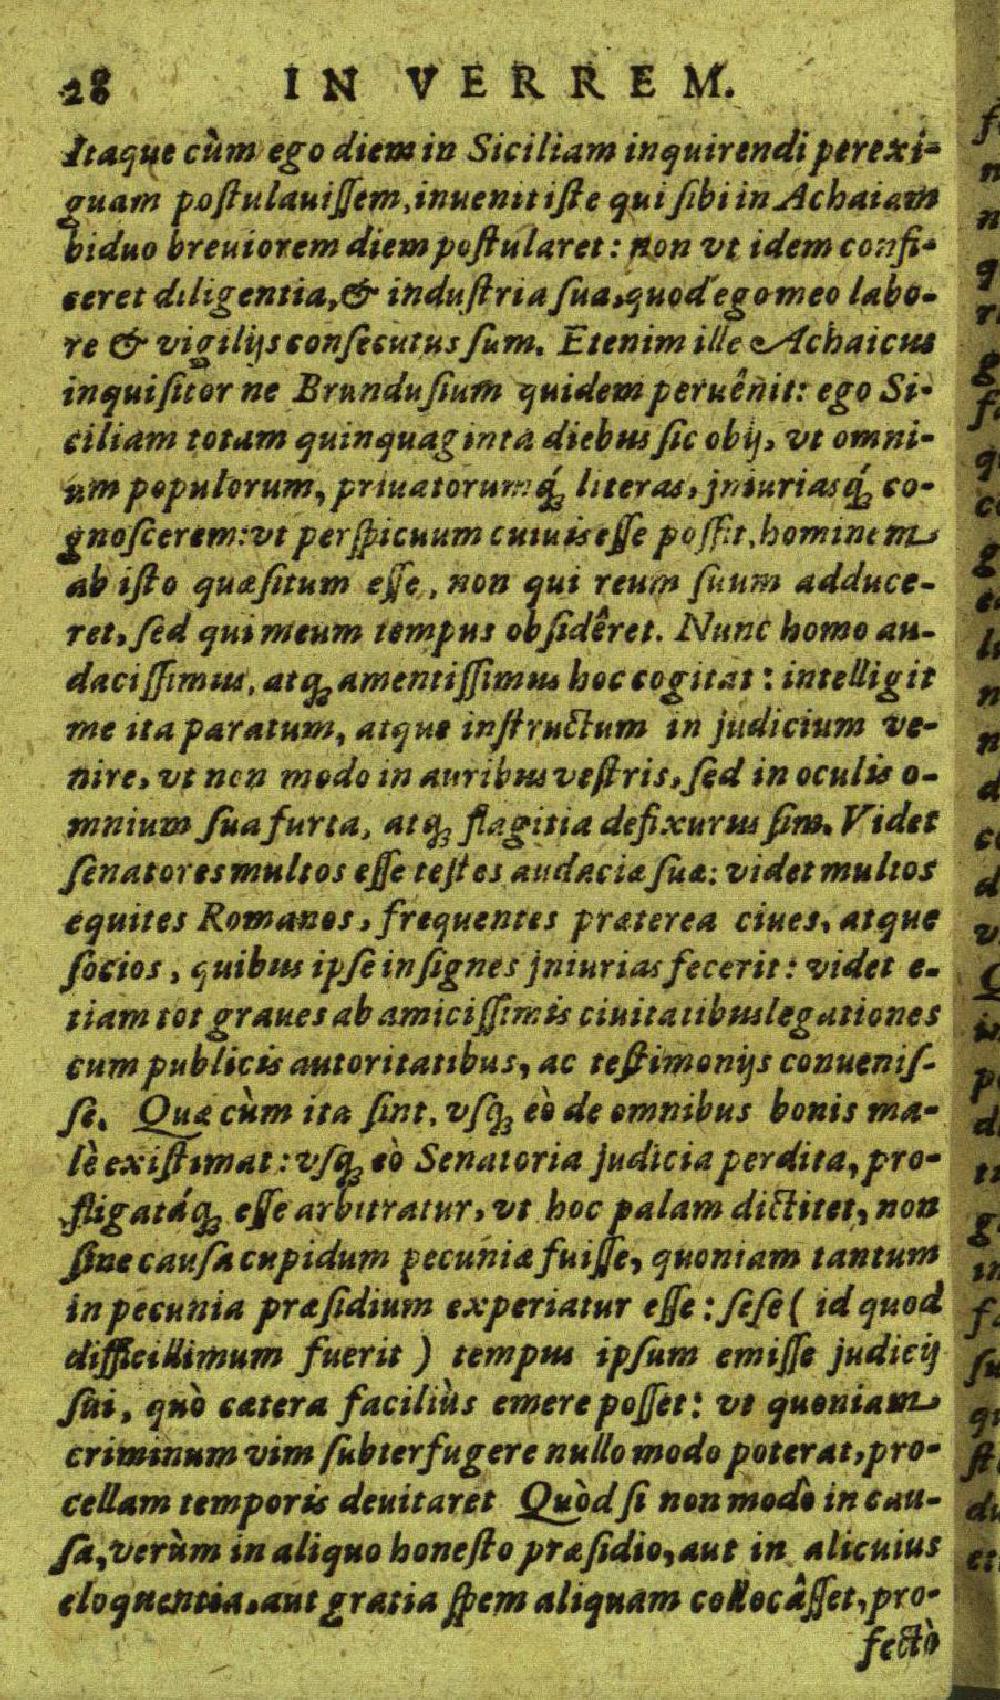 28 IN VERREM.
Itaque cùm ego diem in Siciliam inquirendi perexi-
guam poſtulauiſſem, inuenit iſte qui ſibi in Achaiam
biduo breuiorem diem poſtularet: non vt idem confi-
ceret diligentia, & induſtria ſua, quod ego meo labo-
re & vigilijs conſecutus ſum. Etenim ille Achaicus
inquiſitor ne Brunduſium quidem peruênit: ego Si-
ciliam totam quinquaginta diebus ſic obij, vt omni-
um populorum, priuatorumq́; literas, jniuriasq́; co-
gnoſcerem: vt perſpicuum cuiuis eſſe poſſit, hominem
ab iſto quæſitum eſſe, non qui reum ſuum adduce-
ret, ſed qui meum tempus obſidêret. Nunc homo au-
daciſſimus, atq; amentiſſimus hoc cogitat: intelligit
me ita paratum, atque inſtructum in judicium ve-
nire, vt non modo in auribus veſtris, ſed in oculis o-
mnium ſua furta, atq; flagitia defixurus ſim. Videt
ſenatores multos eſſe teſtes audaciæ ſuæ: videt multos
equites Romanos, frequentes præterea ciues, atque
ſocios, quibus ipſe inſignes jniurias fecerit: videt e-
tiam tot graues ab amiciſſimis ciuitatibus legationes
cum publicis autoritatibus, ac teſtimonijs conueniſ-
ſe. Quæ cùm ita ſint, vſq; eò de omnibus bonis ma-
lè exiſtimat: vſq; eò Senatoria judicia perdita, pro-
fligatáq; eſſe arbitratur, vt hoc palam dictitet, non
ſine cauſa cupidum pecuniæ fuiſſe, quoniam tantum
in pecunia præſidium experiatur eſſe: ſeſe ( id quod
difficillimum fuerit ) tempus ipſum emiſſe judicij
ſui, quò cætera faciliùs emere poſſet: vt quoniam
criminum vim ſubterfugere nullo modo poterat, pro-
cellam temporis deuitaret Quòd ſi non modò in cau-
ſa, verùm in aliquo honeſto præſidio, aut in alicuius
eloquentia, aut gratia ſpem aliquam collocâſſet, pro-
fectò